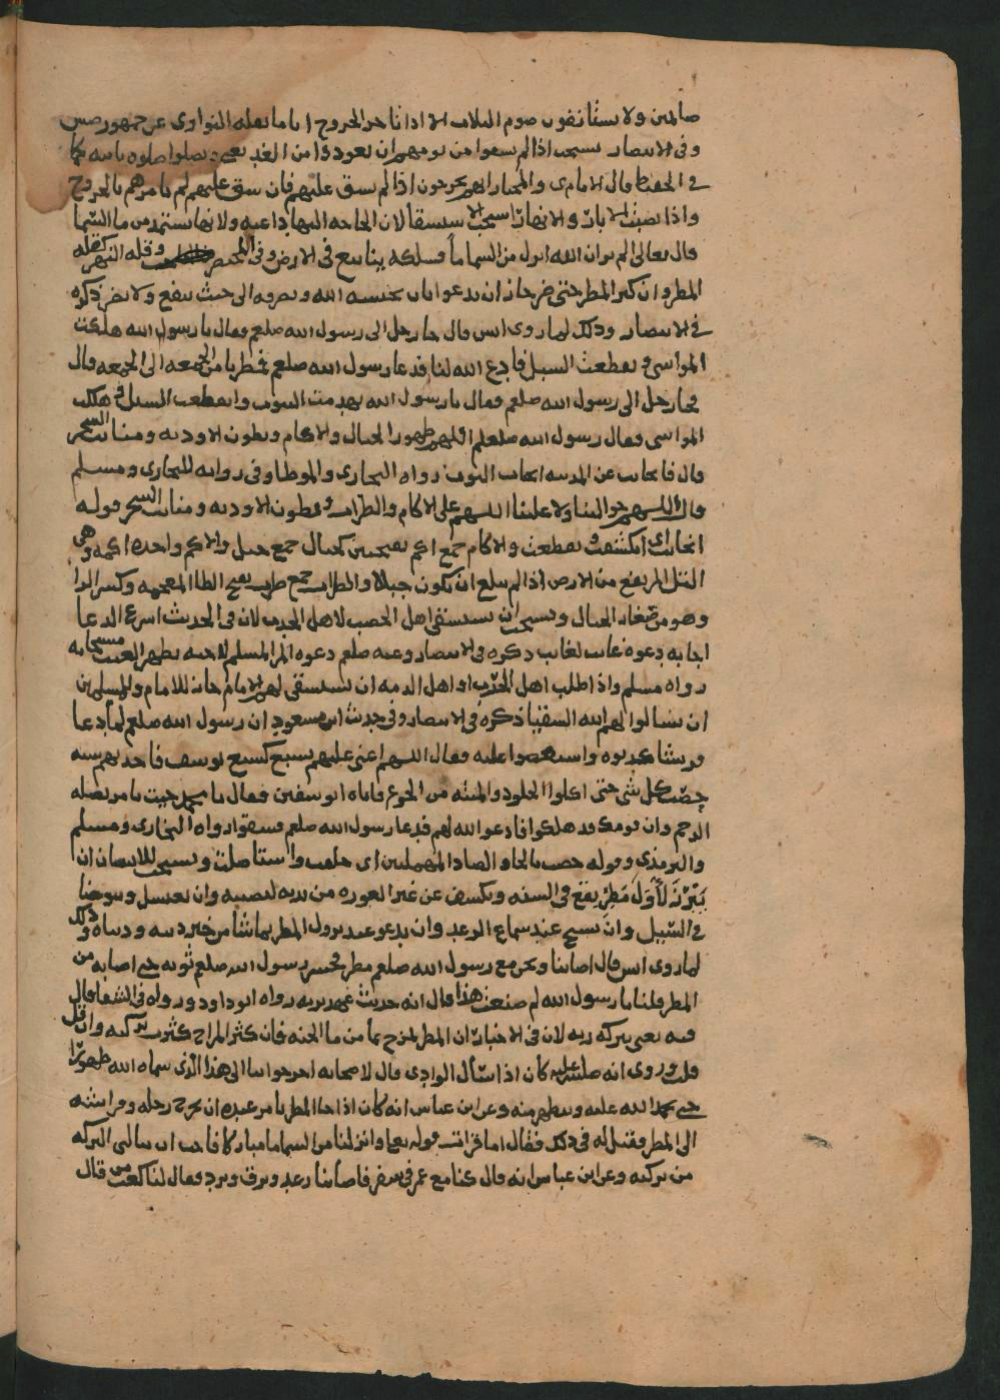 صائمين ولا يستأنفون صوم الثلاث الا اذا تاخر الخروج اياما نقله النواوى عن جمهور
وفى الانتصار يستحب اذا لم يسقوا من يومهم ان يعودوا من الغد ويصلوا صلوة ثانيه كما
فى الحفظ وقال الامامى والمختار انهم يخرجون اذا لم يشق عليهم فان شق عليهم لم يامرهم بالخروج
واذا نضبت الابار والانهار استحب الاستسقا لان الحاجه اليها داعيه ولانها تستمد من ما السما
قال تعالى الم تر ان الله انزل من السما ماً فسلكه ينابيع فى الارض وفى وقله النهر كقله
المطر وان كثر المطر حتى ضر جاز ان يدعو بان يحبسه الله ويصرفه الى حيث ينفع ولا يضر ذكره
فى الانتصار وذلك لما روى انس قال جا رجل الى رسول الله صلعم فقال يا رسول الله هلكت
المواشى وتقطعت السبل فادع الله لنا فدعا رسول الله صلعم فمطرنا من الجمعه الى الجمعه قال
فجا رجل الى رسول الله صلعم فقال يا رسول الله تهدمت البيوت وانقطعت السبل وهلكت
المواشى فقال رسول الله صلعم اللهم ظهور الجبال والاكام وبطون الاوديه ومنابت الشجر
قال فانجاب عن المدينه انجياب الثوب رواه البخارى والموطا وفى روايه للبخارى ومسلم
قال اللهم حوالينا ولا علينا اللهم على الاكام والظراب وبطون الاوديه ومنابت الشجر قوله
انجابت اى انكشفت وتقطعت والاكام جمع اكم بفتحتين كجبال جمع جبل والاكم واحده اكمه وهى
التل المرتفع من الارض اذا لم يبلغ ان يكون جبلا والظراب جمع ظرب بفتح الظا المعجمه وكسر الرا
وهو من صغار الجبال ويستحب ان يستسقى اهل الخصب لاهل الجدب لان فى الحديث اسرع الدعا
اجابه دعوه غائب لغائب ذكره فى الانتصار وعنه صلعم دعوه المرا المسلم لاخيه بظهر الغيب مستجابه
رواه مسلم واذا طلب اهل الحرب او اهل الذمه ان يستسقى لهم الامام جاز للامام والمسلمين
ان يسالوا لهم الله السقيا ذكره فى الانتصار وفى حديث ابن مسعود ان رسول الله صلعم لما دعا
قريشا كذبوه واستعصوا عليه فقال اللهم اعنى عليهم بسبع كسبع يوسف فاخذتهم سنه
حصت كل شى حتى اكلوا الجلود والميته من الجوع فاتاه ابو سفين فقال يا محمد جيت تامر بصله
الرحم وان قومك قد هلكوا فادعو الله لهم فدعا رسول الله صلعم فسقوا رواه البخارى ومسلم
والترمذى وقوله حصت بالحا والصاد المهملتين اى حلقت واستاصلت ويستحب للانسان ان
يَبْرُزَ لأَوَّلِ مَطَرٍ يقع فى السنه ويكشف عن غير العوره من بدنه ليصيبه وان يغتسل ويتوضا
فى السَّيل وان يسبح عند سماع الرعد وان يدعو عند نزول المطر بما شا من خير دينه ودنياه وذلك
لما روى انس قال اصابنا ونحن مع رسول الله صلعم مطر فحسر رسول الله صلعم ثوبه حتى اصابه من
المطر فقلنا يا رسول الله لم صنعت هذا قال انه حديث عهد بربه رواه ابو داود ورواه فى الشفا وقال
فيه يعنى ببركه ربه لان فى الاخبار ان المطر يمزج بما من ما الجنه فان كثر المزاج كثرت بركته وان قل
قلت وروى انه صلعم كان اذا سال الوادى قال لاصحابه اخرجوا بنا الى هذا الذى سماه الله طهورًا
حتى نحمد الله عليه ونتطهر منه وعن ابن عباس انه كان اذا جا المطر يامر عبده ان يخرج رحله وفراشه
الى المطر فقيل له فى ذلك فقال اما قرات قوله تعا وانزلنا من السما ما مباركا فاحب ان ينالنى البركه
من بركته وعن ابن عباس انه قال كنا مع عمر فى سفر فاصابنا رعد وبرق وبرد فقال لنا كعب من قال